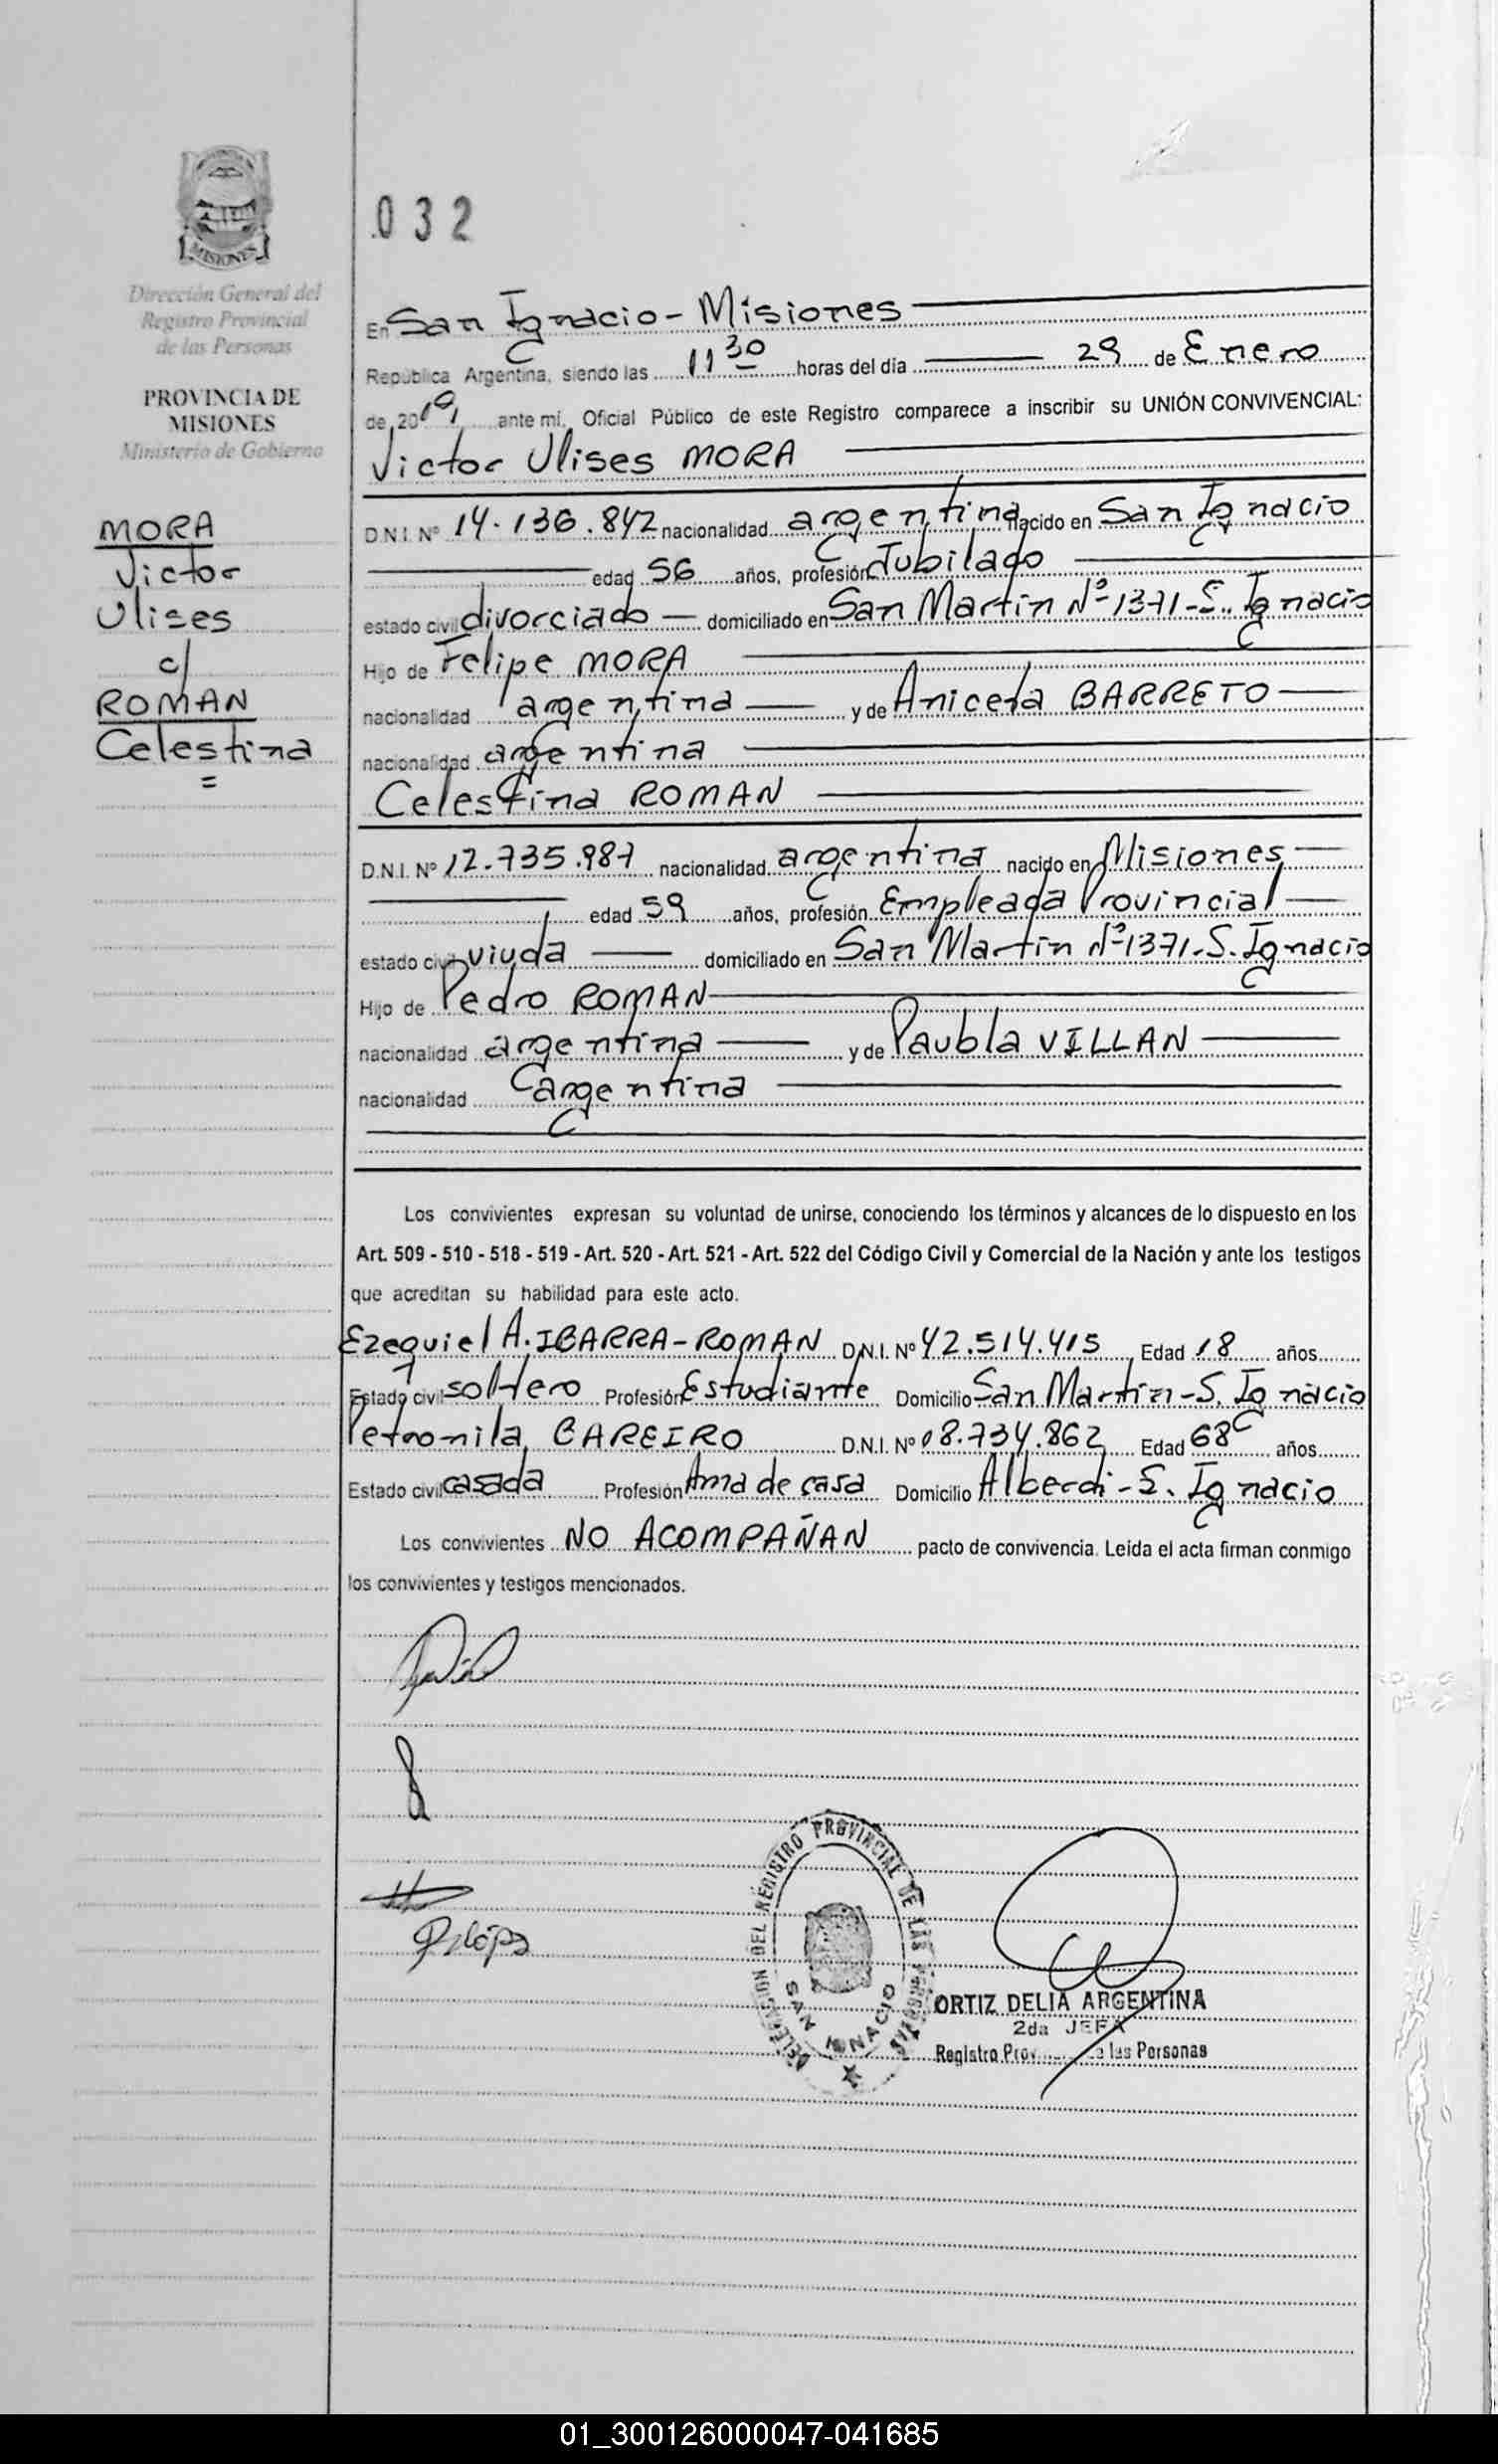 MISIONES
Dirección General del
Registro Provincial
de las Personas
PROVINCIA DE
MISIONES
Ministerio de Gobierno
MORA
Victor
Ulises
c/
ROMAN
Celestina
=
032
En San Ignacio - Misiones
República Argentina, siendo las 11 30 horas del día 29 de Enero
de 2019 ante mí, Oficial Público de este Registro comparece a inscribir su UNIÓN CONVIVENCIAL:
Victor Ulises MORA
D.N.I. Nº 14.136.842 nacionalidad argentina nacido en San Ignacio
edad 56 años, profesión Jubilado
estado civil divorciado domiciliado en San Martin Nº 1371-S. Ignacio
Hijo de Felipe MORA
nacionalidad argentina y de Aniceta BARRETO
nacionalidad argentina
Celestina ROMAN
D.N.I. Nº 12.735.987 nacionalidad argentina nacido en Misiones
edad 59 años, profesión Empleada Provincial
estado civil viuda domiciliado en San Martin Nº 1371-S. Ignacio
Hijo de Pedro ROMAN
nacionalidad argentina y de Paubla VILLAN
nacionalidad argentina
Los convivientes expresan su voluntad de unirse, conociendo los términos y alcances de lo dispuesto en los
Art. 509 - 510 - 518 - 519 - Art. 520 - Art. 521 - Art. 522 del Código Civil y Comercial de la Nación y ante los testigos
que acreditan su habilidad para este acto.
Ezequiel A. IBARRA-ROMAN D.N.I. Nº 42.514.415 Edad 18 años
Estado civil soltero Profesión Estudiante Domicilio San Martin-S. Ignacio
Petronila BAREIRO D.N.I. Nº 08.734.862 Edad 68 años
Estado civil casada Profesión Ama de casa Domicilio Alberdi-S. Ignacio
Los convivientes NO ACOMPAÑAN pacto de convivencia. Leida el acta firman conmigo
los convivientes y testigos mencionados.
DELEGACION DEL REGISTRO PROVINCIAL DE LAS PERSONAS
SAN IGNACIO
ORTIZ DELIA ARGENTINA
2da JEFA
Registro de las Personas
01_300126000047-041685